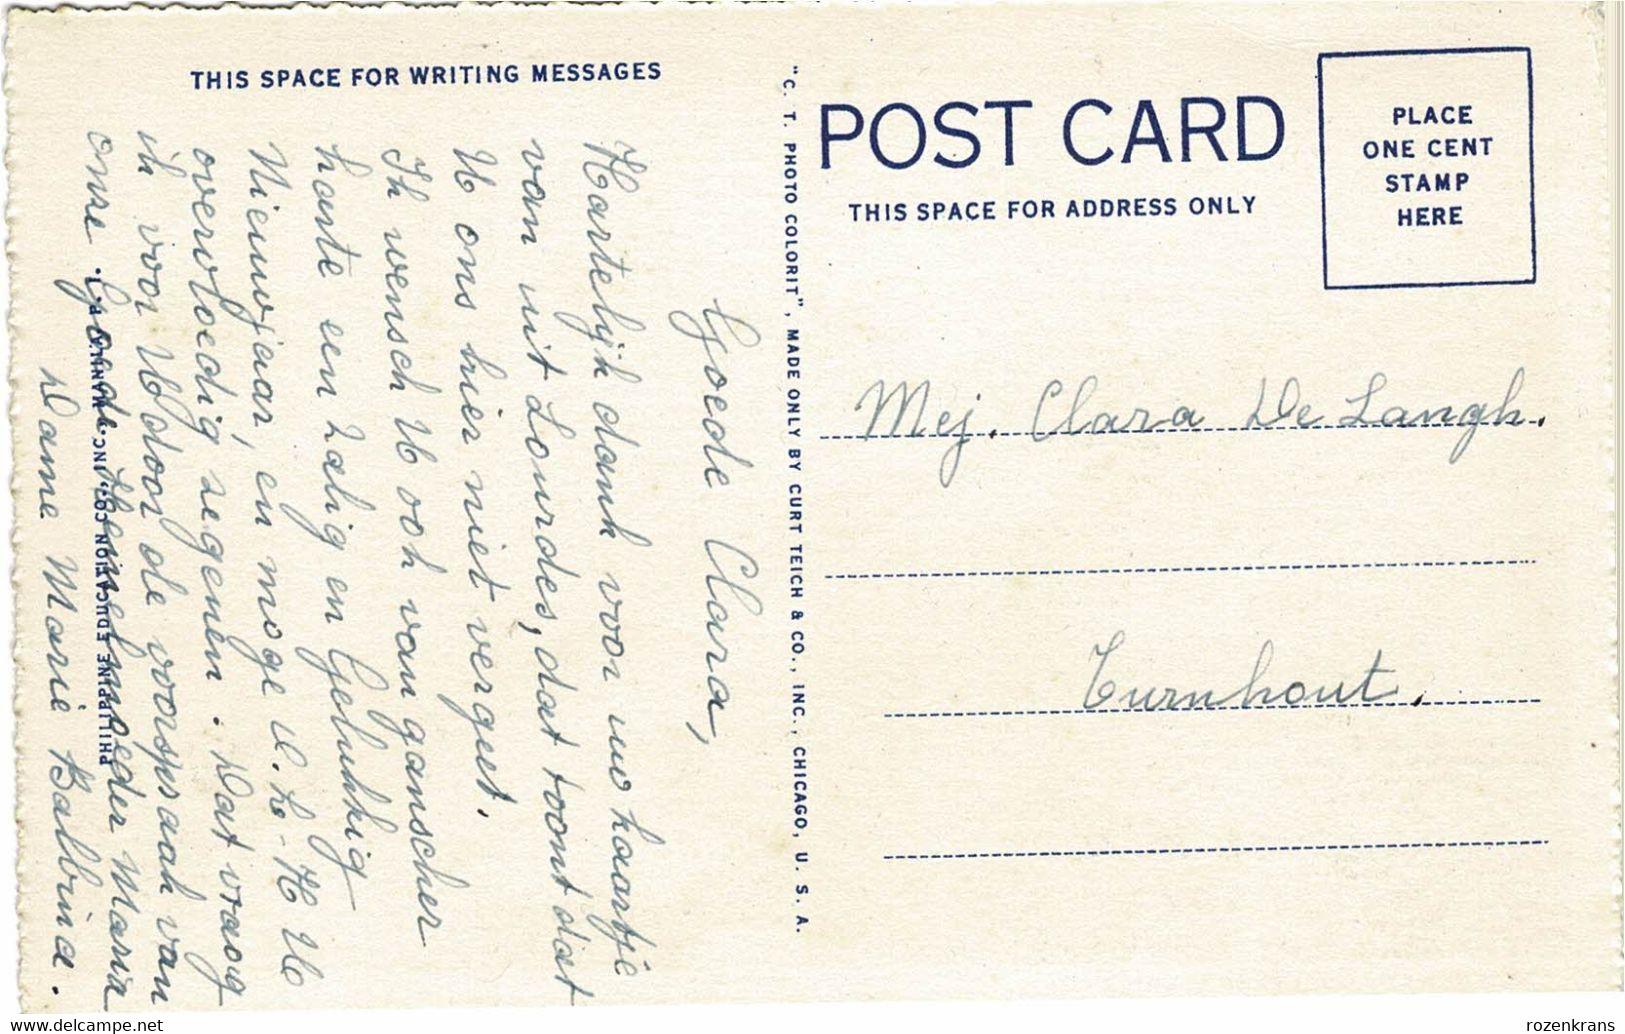 THIS SPACE FOR WRITING MESSAGES
Goede Clara,
Hartelijk dank voor uw kaartje
van uit Lourdes, dat toont dat
U ons hier niet verget.
Ik wensch U ook van ganscher
harte een zalig en Gelukkig
Nieuwjaar, en moge O. L. H U
overvloedig zegenen. Dat vraag
ik voor U door de voorspraak van
onze Goede Hemelmoeder Maria
Dame Marie Balbina.
PHILIPPINE EDUCATION CO., INC., MANILA, P. I.
"C. T. PHOTO COLORIT", MADE ONLY BY CURT TEICH & CO., INC., CHICAGO, U. S. A.
POST CARD
THIS SPACE FOR ADDRESS ONLY
PLACE
ONE CENT
STAMP
HERE
Mej. Clara De Langh.
Turnhout.
www.delcampe.net
rozenkrans